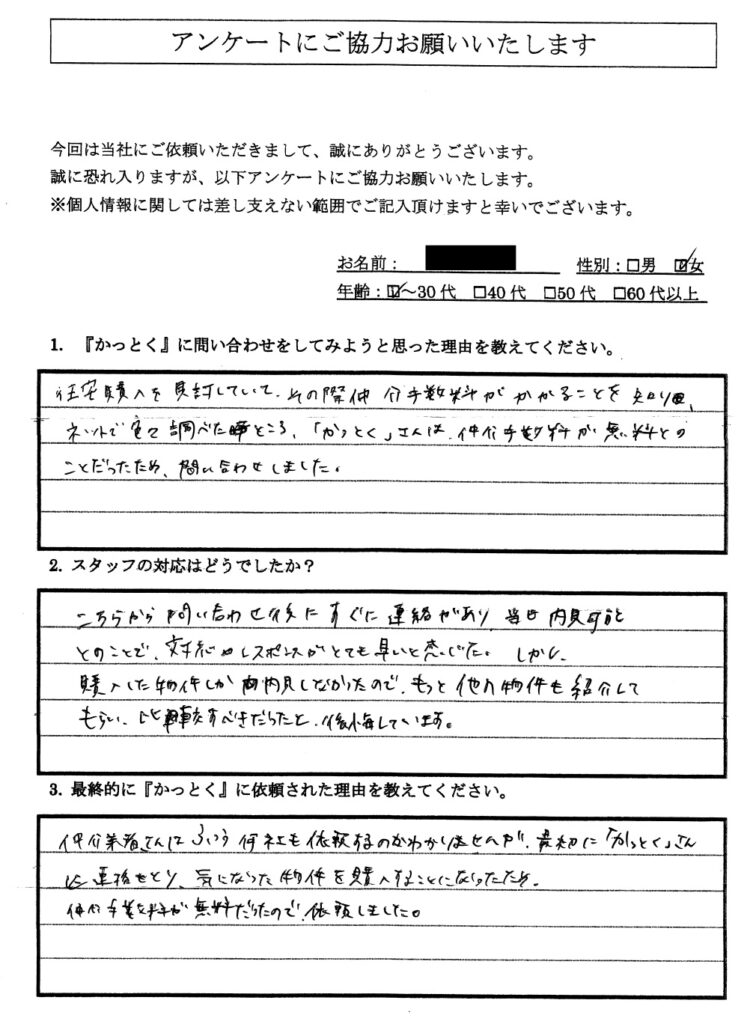 アンケートにご協力お願いいたします
今回は当社にご依頼いただきまして、誠にありがとうございます。
誠に恐れ入りますが、以下アンケートにご協力お願いいたします。
※個人情報に関しては差し支えない範囲でご記入頂けますと幸いでございます。
お名前： 性別：□男 ☑女
年齢：☑～30代 □40代 □50代 □60代以上
1. 『かっとく』に問い合わせをしてみようと思った理由を教えてください。
住宅購入を検討していて、その際仲介手数料がかかることを知り、
ネットで色々調べたところ、「かっとく」さんは、仲介手数料が無料との
ことだったため、問い合わせしました。
2. スタッフの対応はどうでしたか？
こちらから問い合わせ後にすぐに連絡があり、当日内見可能
とのことで、対応やレスポンスがとても早いと感じた。しかし、
購入した物件しか内見しなかったので、もっと他の物件も紹介して
もらい、比較すべきだったと、後悔しています。
3. 最終的に『かっとく』に依頼された理由を教えてください。
仲介業者さんにふつう何社も依頼するのかわかりませんが、最初に「かっとく」さん
に連絡をとり、気になった物件を購入することになったため。
仲介手数料が無料だったので、依頼しました。